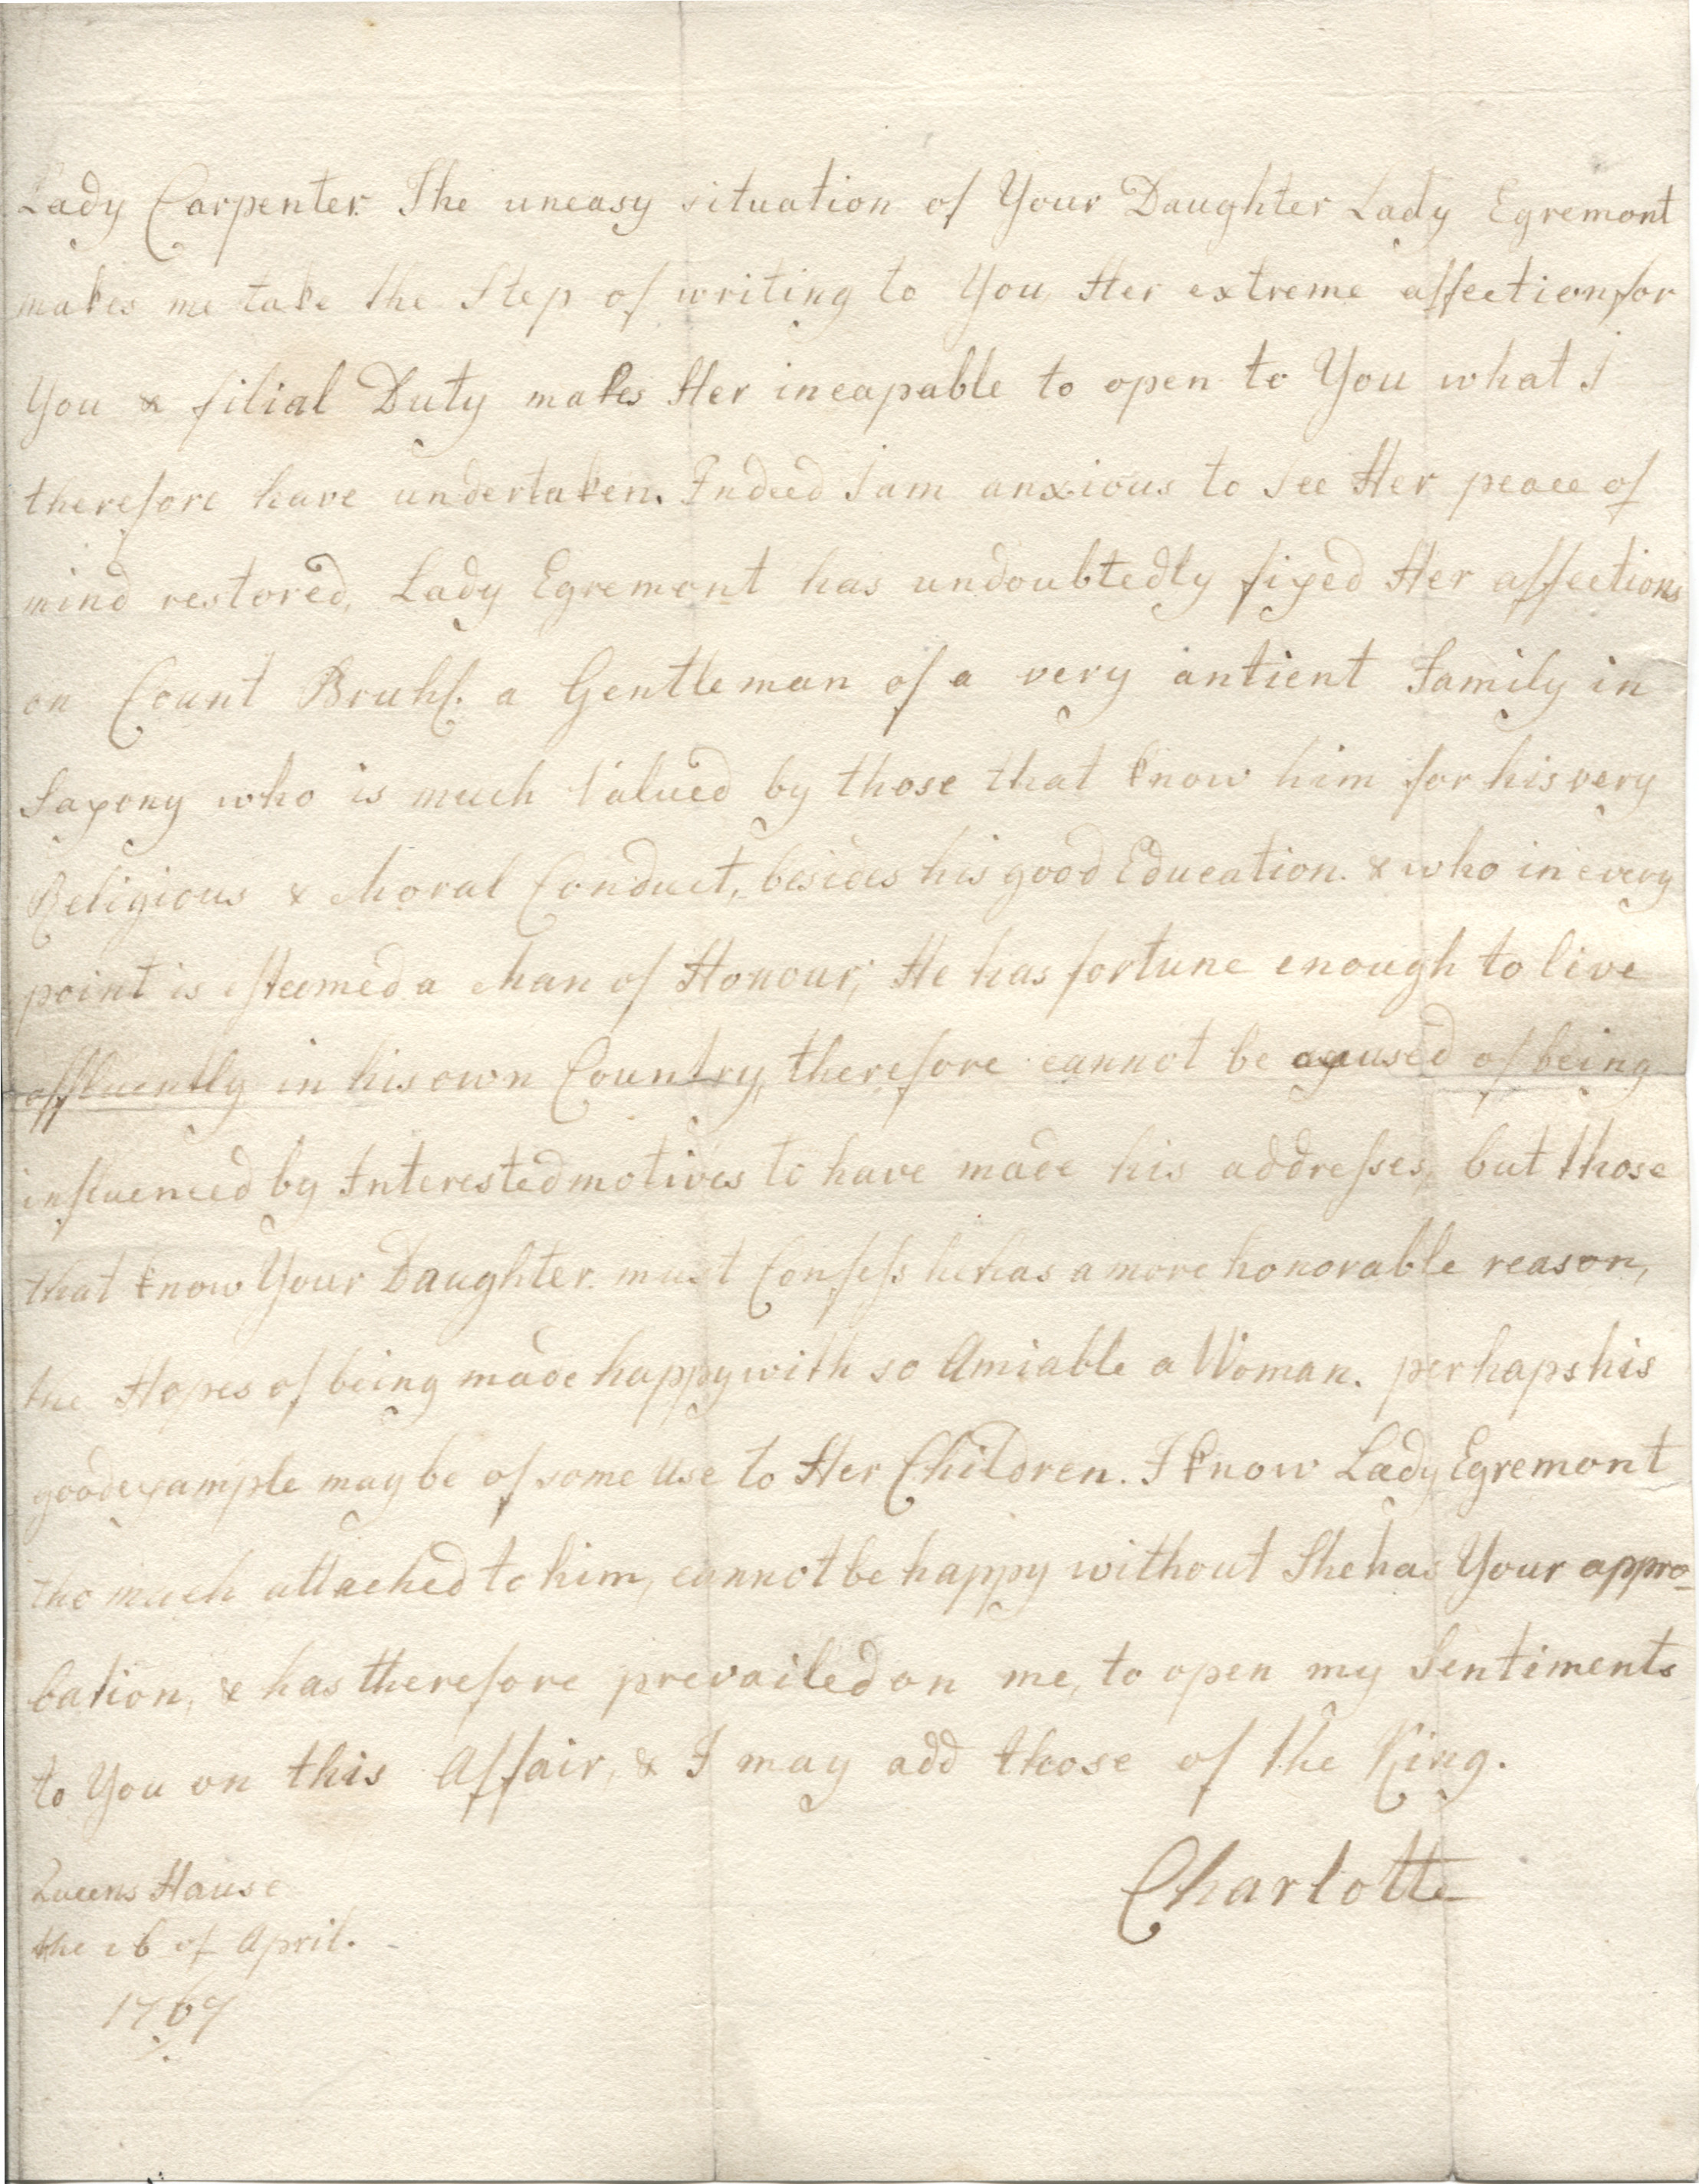 Lady Carpenter. The uneasy situation of Your Daughter Lady Egremont
makes me take the Step of writing to You, Her extreme affection for
You & filial Duty makes Her incapable to open to You what I
therefore have undertaken. Indeed I am anxious to see Her peace of
mind restored, Lady Egremont has undoubtedly fixed Her affections
on Count Bruhl. a Gentleman of a very antient Family in
Saxony who is much Valued by those that know him for his very
Religious & Moral Conduct, besides his good Education. & who in every
point is esteemed a Man of Honour; He has fortune enough to live
affluently in his own Country, therefore cannot be acused of being
influenced by Interested motives to have made his addresses, but those
that know Your Daughter. must Confess he has a more honorable reason,
the Hopes of being made happy with so Amiable a Woman. perhaps his
good example may be of some Use to Her Children. I know Lady Egremont
tho much attached to him, cannot be happy without She has Your appro-
bation, & has therefore prevailed on me, to open my Sentiments
to You on this Affair, & I may add those of the King.
Charlotte
Queens House
the 16 of April.
1767